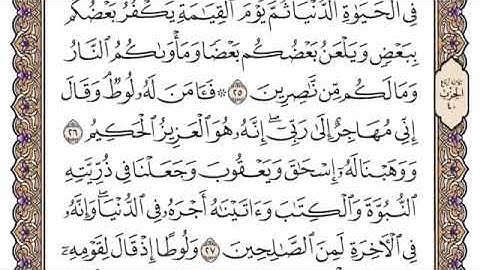 فِي الْحَيَوٰةِ الدُّنْيَا ثُمَّ يَوْمَ الْقِيَٰمَةِ يَكْفُرُ بَعْضُكُم
بِبَعْضٍ وَيَلْعَنُ بَعْضُكُم بَعْضًا وَمَأْوَىٰكُمُ النَّارُ
وَمَا لَكُم مِّن نَّٰصِرِينَ ٢٥ ۞ فَـَٔامَنَ لَهُۥ لُوطٌ وَقَالَ
إِنِّي مُهَاجِرٌ إِلَىٰ رَبِّيٓ إِنَّهُۥ هُوَ الْعَزِيزُ الْحَكِيمُ ٢٦
وَوَهَبْنَا لَهُۥٓ إِسْحَٰقَ وَيَعْقُوبَ وَجَعَلْنَا فِي ذُرِّيَّتِهِ
النُّبُوَّةَ وَالْكِتَٰبَ وَءَاتَيْنَٰهُ أَجْرَهُۥ فِي الدُّنْيَا وَإِنَّهُۥ
فِي الْءَاخِرَةِ لَمِنَ الصَّٰلِحِينَ ٢٧ وَلُوطًا إِذْ قَالَ لِقَوْمِهِۦٓ
الحزب
٤٠